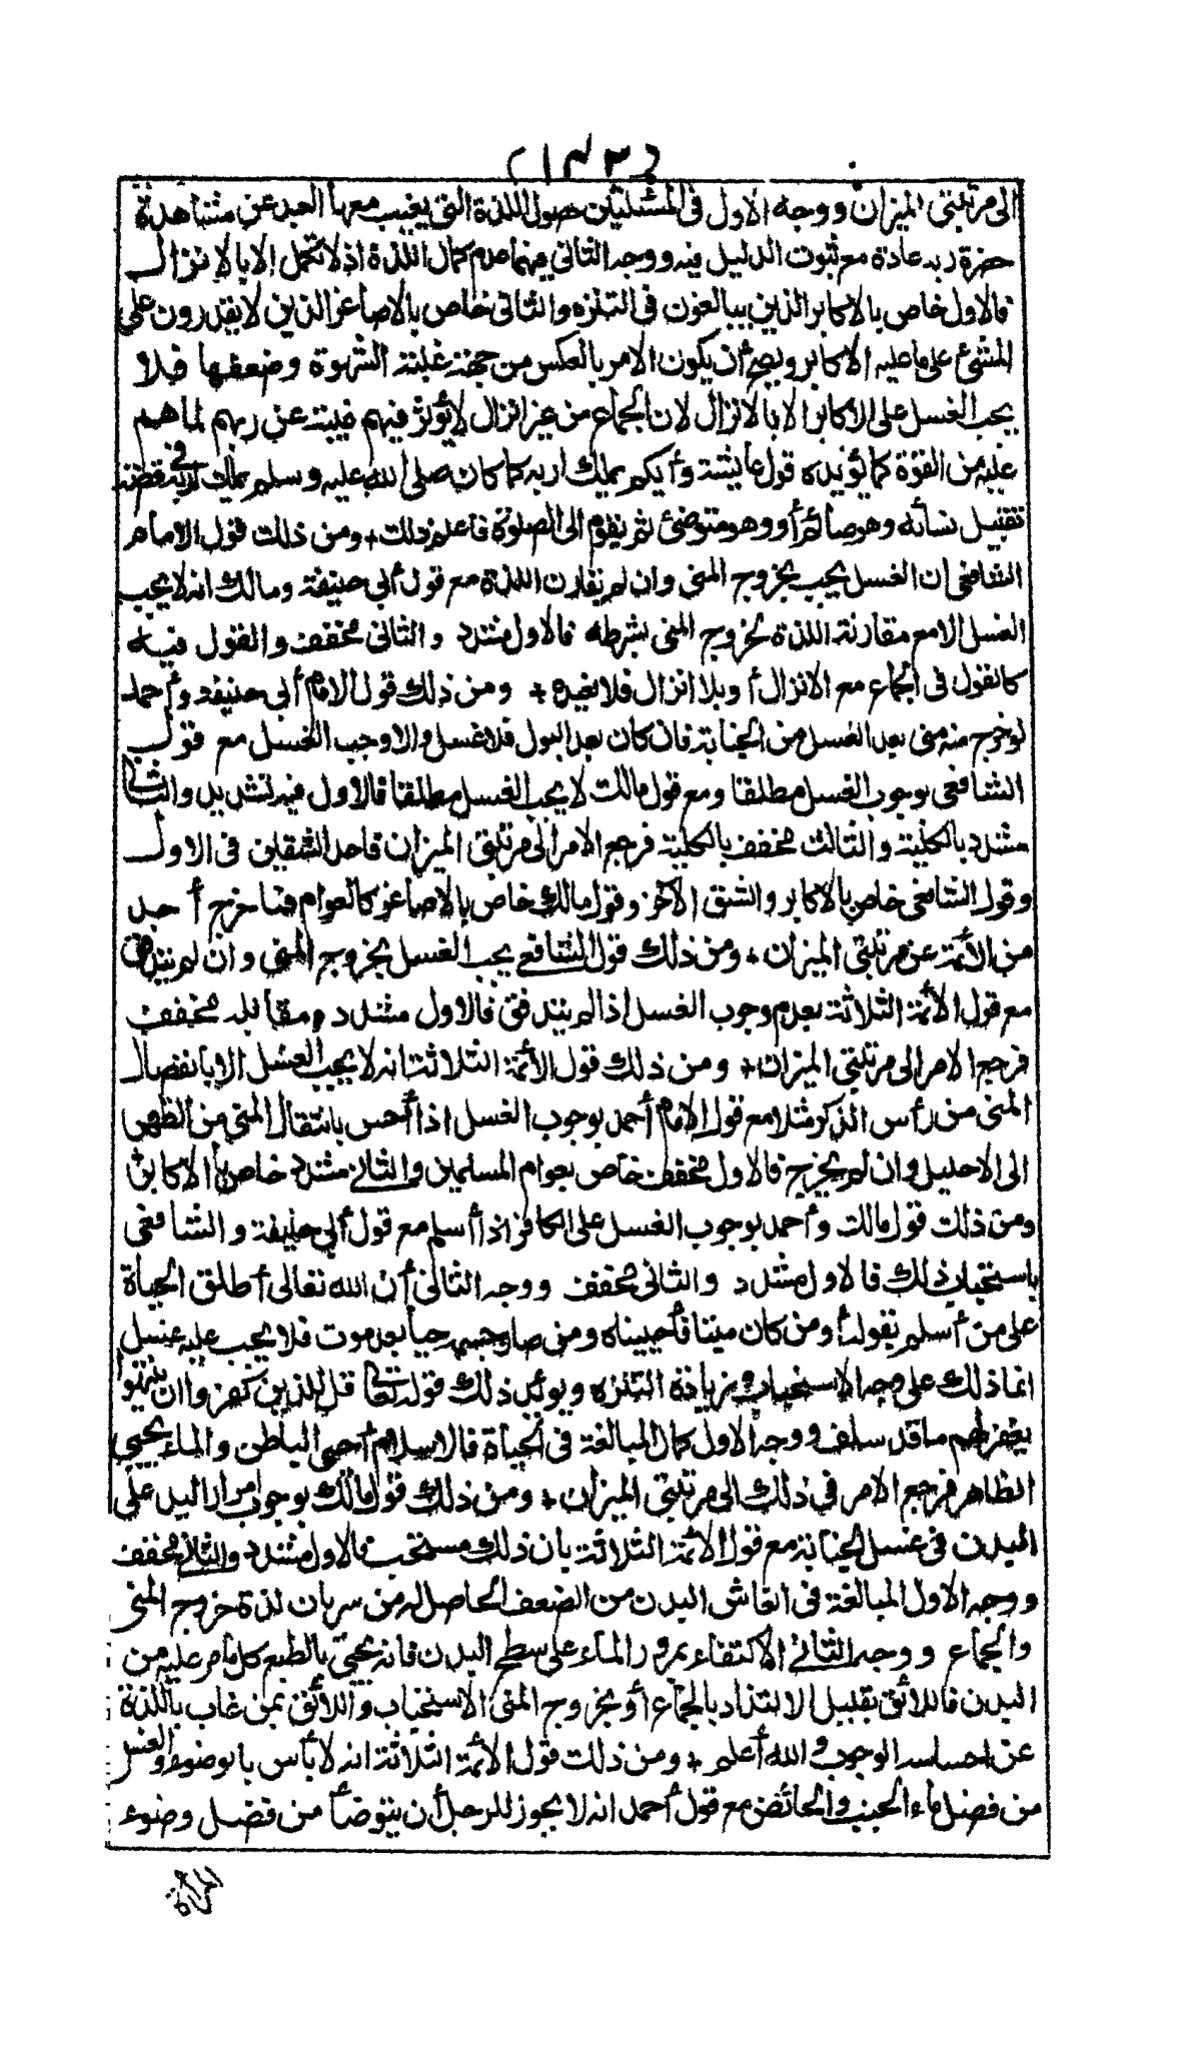 (١٤٣)
الى مرتبتي الميزان ووجه الاول فى المسئلتين حصول اللذة التى يغيب معها العبد عن مشاهدة
حضرة ربه عادة مع ثبوت الدليل فيه ووجه الثانى فيهما عدم كمال اللذة اذ لا تكمل الا بالانزال
فالاول خاص بالاكابر الذين يبالغون فى التنزه والثانى خاص بالاصاغر الذين لا يقدرون على
المشى على ما عليه الاكابر ويصح أن يكون الامر بالعكس من جهة غلبة الشهوة وضعفها فلا
يجب الغسل على الاكابر الا بالانزال لان الجماع من غير انزال لا يؤثر فيهم غيبة عن ربهم لما هم
عليه من القوة كما يؤيده قول عايشة وأيكم يملك اربه كما كان صلى الله عليه وسلم يملك اربه فى قصة
تقبيل نسائه وهو صائم أو وهو متوضئ ثم يقوم الى الصلوة فاعلم ذلك + ومن ذلك قول الامام
الشافعى ان الغسل يجب بخروج المنى وان لم تقارن اللذة مع قول أبى حنيفة ومالك انه لا يجب
الغسل الا مع مقارنة اللذة لخروج المنى بشرطه فالاول مشدد والثانى مخفف والقول فيه
كالقول فى الجماع مع الانزال أو بلا انزال فلا نعيده + ومن ذلك قول الامام أبى حنيفة وأحمد
لو خرج منه منى بعد الغسل من الجنابة فان كان بعد البول فلا غسل والا وجب الغسل مع قول
الشافعى بوجوب الغسل مطلقا ومع قول مالك لا يجب الغسل مطلقا فالاول فيه تشديد والثانى
مشدد بالكلية والثالث مخفف بالكلية فرجع الامر الى مرتبتى الميزان فاحد الشقين فى الاول
وقول الشافعى خاص بالاكابر والشق الآخر وقول مالك خاص بالاصاغر كالعوام فما خرج أحد
من الأئمة عن مرتبتى الميزان + ومن ذلك قول الشافعي يجب الغسل بخروج المنى وان لم يتدفق
مع قول الأئمة الثلاثة بعدم وجوب الغسل اذا لم يتدفق فالاول مشدد ومقابله مخفف
فرجع الامر الى مرتبتي الميزان + ومن ذلك قول الأئمة الثلاثة انه لا يجب الغسل الا بانفصال
المنى من رأس الذكر مثلا مع قول الامام أحمد بوجوب الغسل اذا أحس بانتقال المنى من الظهر
الى الاحليل وان لم يخرج فالاول مخفف خاص بعوام المسلمين والثانى مشدد خاص بالاكابر
ومن ذلك قول مالك وأحمد بوجوب الغسل على الكافر اذا أسلم مع قول أبى حنيفة والشافعى
باستحباب ذلك فالاول مشدد والثانى مخفف ووجه الثانى أن الله تعالى أطلق الحياة
على من أسلم بقوله أومن كان ميتا فأحييناه ومتى صار جسمه حيا بعد موت فلا يجب عليه غسل
انما ذلك على وجه الاستحباب وزيادة التنزه ويؤيد ذلك قوله تعالى قل للذين كفروا ان ينتهوا
يغفر لهم ما قد سلف ووجه الاول كمال المبالغة فى الحياة فالاسلام أحيى الباطن والماء يحيى
الظاهر فرجع الامر في ذلك الى مرتبتى الميزان + ومن ذلك قول مالك بوجوب امرار اليد على
البدن فى غسل الجنابة مع قول الأئمة الثلاثة بان ذلك مستحب فالاول مشدد والثانى مخفف
ووجه الاول المبالغة فى انعاش البدن من الضعف الحاصل له من سريان لذة خروج المنى
والجماع ووجه الثانى الاكتفاء بمرور الماء على سطح البدن فانه يحيى بالطبع كل ما مر عليه من
البدن فاللائق بقليل الالتذاذ بالجماع أو بخروج المنى الاستحباب واللائق بمن غاب باللذة
عن احساسه الوجوب والله أعلم + ومن ذلك قول الأئمة الثلاثة انه لا بأس بالوضوء والغسل
من فضل ماء الجنب والحائض مع قول أحمد انه لا يجوز للرجل أن يتوضأ من فضل وضوء
المرأة